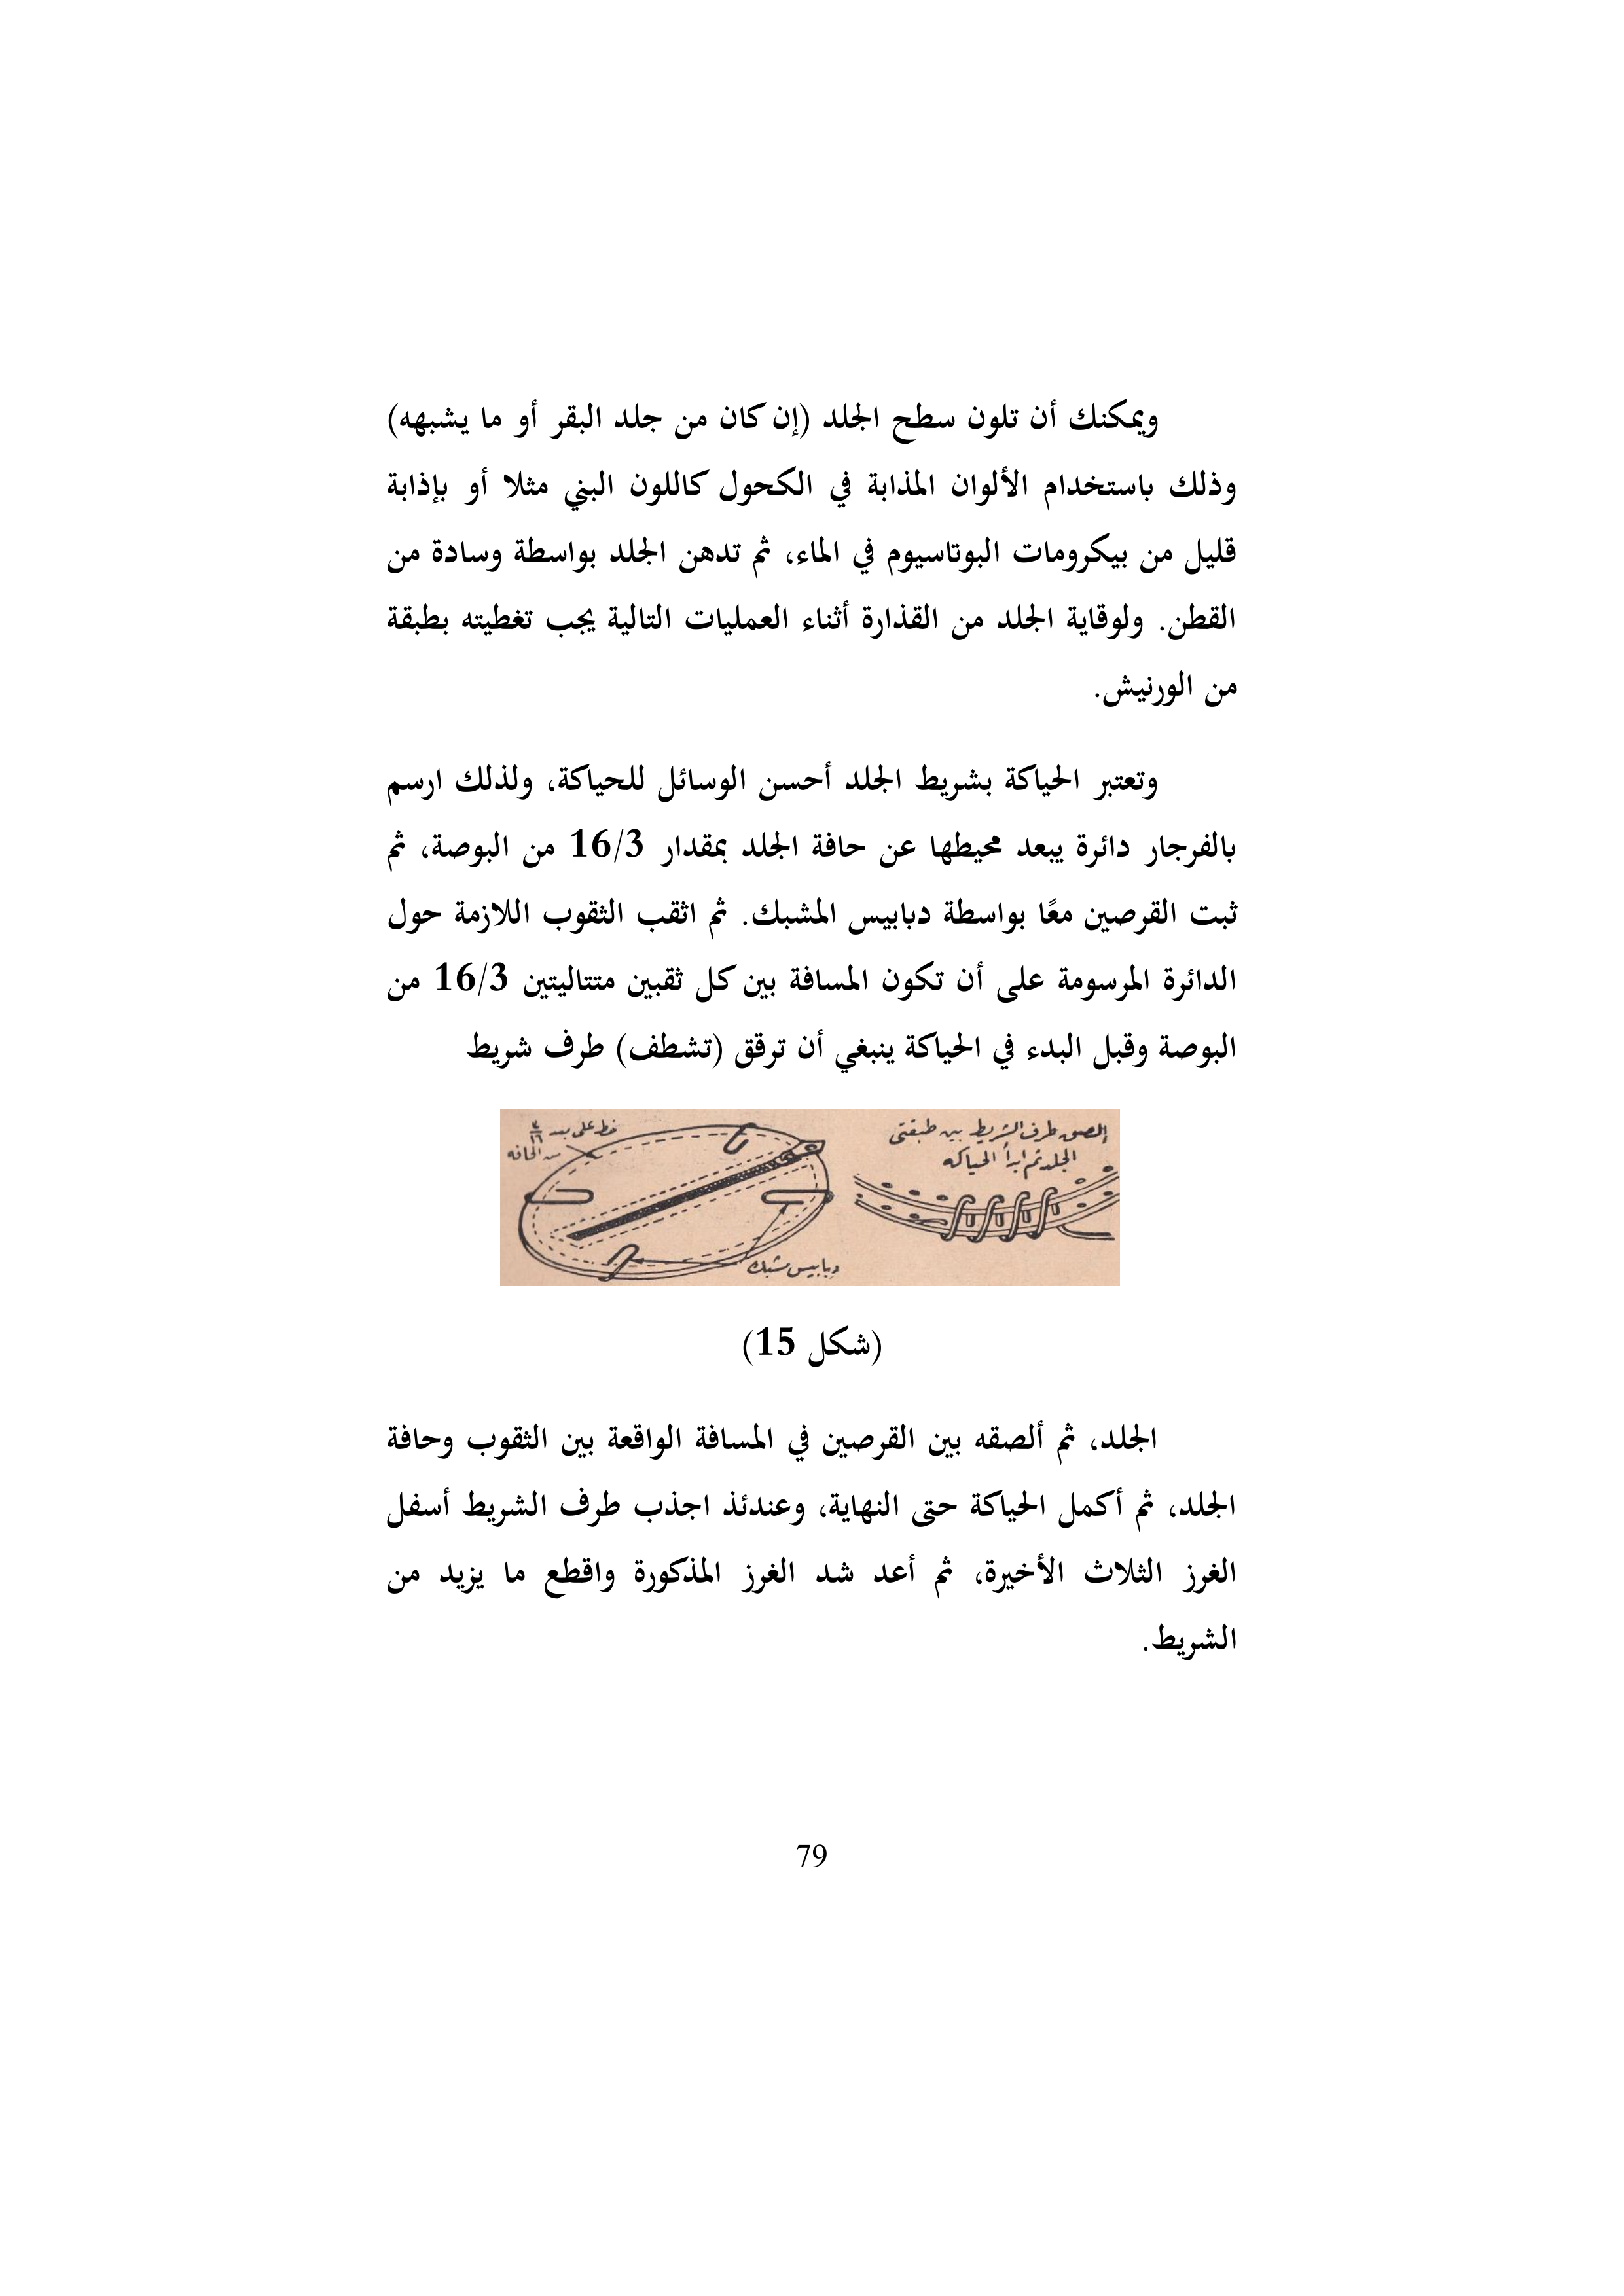 ويمكنك أن تلون سطح الجلد (إن كان من جلد البقر أو ما يشبهه)
وذلك باستخدام الألوان المذابة في الكحول كاللون البني مثلا أو بإذابة
قليل من بيكرومات البوتاسيوم في الماء، ثم تدهن الجلد بواسطة وسادة من
القطن. ولوقاية الجلد من القذارة أثناء العمليات التالية يجب تغطيته بطبقة
من الورنيش.
وتعتبر الحياكة بشريط الجلد أحسن الوسائل للحياكة، ولذلك ارسم
بالفرجار دائرة يبعد محيطها عن حافة الجلد بمقدار 16/3 من البوصة، ثم
ثبت القرصين معًا بواسطة دبابيس المشبك. ثم اثقب الثقوب اللازمة حول
الدائرة المرسومة على أن تكون المسافة بين كل ثقبين متتاليتين 16/3 من
البوصة وقبل البدء في الحياكة ينبغي أن ترقق (تشطف) طرف شريط
إلصق طرف الشريط بين طبقتي
الجلد ثم ابدأ الحياكه
خط على بعد ٣/١٦
من الحافه
دبابيس مشبك
(شكل 15)
الجلد، ثم ألصقه بين القرصين في المسافة الواقعة بين الثقوب وحافة
الجلد، ثم أكمل الحياكة حتى النهاية، وعندئذ اجذب طرف الشريط أسفل
الغرز الثلاث الأخيرة، ثم أعد شد الغرز المذكورة واقطع ما يزيد من
الشريط.
79